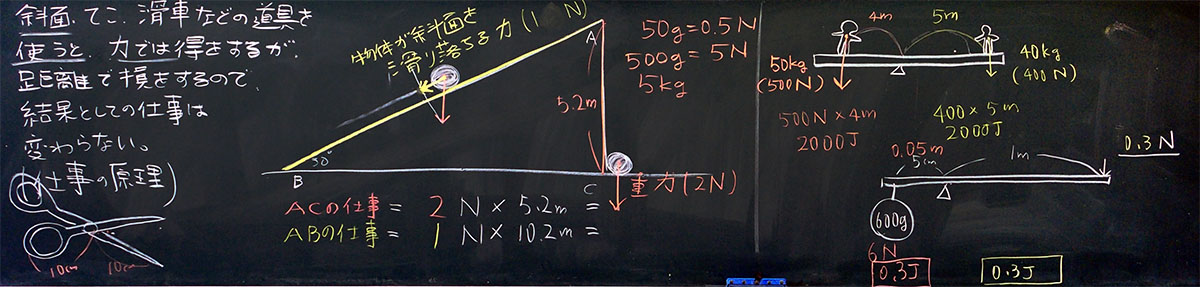 斜面、てこ、滑車などの道具を
使うと、力では得をするが、
距離で損をするので、
結果としての仕事は
変わらない。
(仕事の原理)
10cm 10cm
物体が斜面を
滑り落ちる力(1 N)
A
5.2m
30°
B
C
重力(2N)
ACの仕事 = 2 N × 5.2m =
ABの仕事 = 1 N × 10.2m =
50g = 0.5N
500g = 5N
5kg
4m 5m
50kg
(500N)
40kg
(400N)
500N × 4m
2000J
400 × 5m
2000J
0.05m
5cm
1m
0.3N
600g
6N
0.3J
0.3J